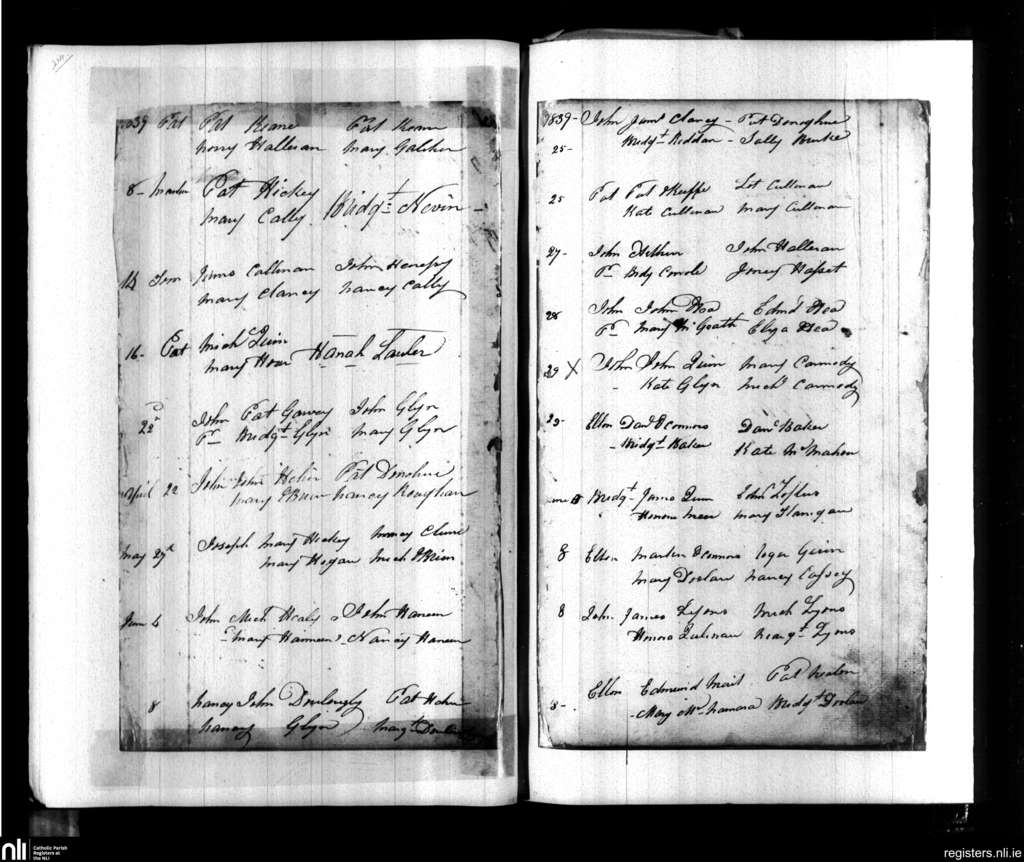 1839 Pat Pat Keane Pat Keane
Nony Halleran Mary Galeher
8 - Martin Pat Hickey Bridgt Nevin
Mary Cally
14 Tom James Callinan John Henepy
Mary Clancy Nancy Cally
16 - Pat Mich Quin Hanah Lawler
Mary Hour
22d John Pat Garvey John Glyn
Pr Bridgt Glyn Mary Glyn
April 22 John John Hehir Pat Donohue
Mary OBrien Nancy Roughan
May 27th Joseph Mary Hickey Clune
Mary Hogan Mich OBrien
June 4 John Mich Healy & John Haneen
Mary Hanneen & Nancy Haneen
8 Nancy John Pat Hehir
Nancy Glyn Margt
1839 - John Jams Clancy - Pat Donoghue
25 - Bridgt Reddan - Sally Burke
25 Pat Pat OKeeffe Lot Cullinan
Kate Cullinan Mary Cullinan
27 - John John Halleran
Pr Bidy
28 John John Hea Edmd Hea
Pr Mary McGrath Eliza Hea
29 X John John Quin Mary Carmody
- Kate Glyn Michl Carmody
29 - Ellen Danl OConnors Danl Baker
- Bridgt Baker Kate McMahon
June Bridgt - James Quin John Loftus
Honora Meer Mary Flanigan
8 Ellen Martin OConnors Roger Guin
Mary Doolan Nancy Casey
8 John James Lyons Mich Lyons
Honora Quilinan Margt Lyons
8 - Ellen Edmund Pat
- Mary McNamara Bridgt Doolan
nli
Catholic Parish
Registers at
the NLI
registers.nli.ie